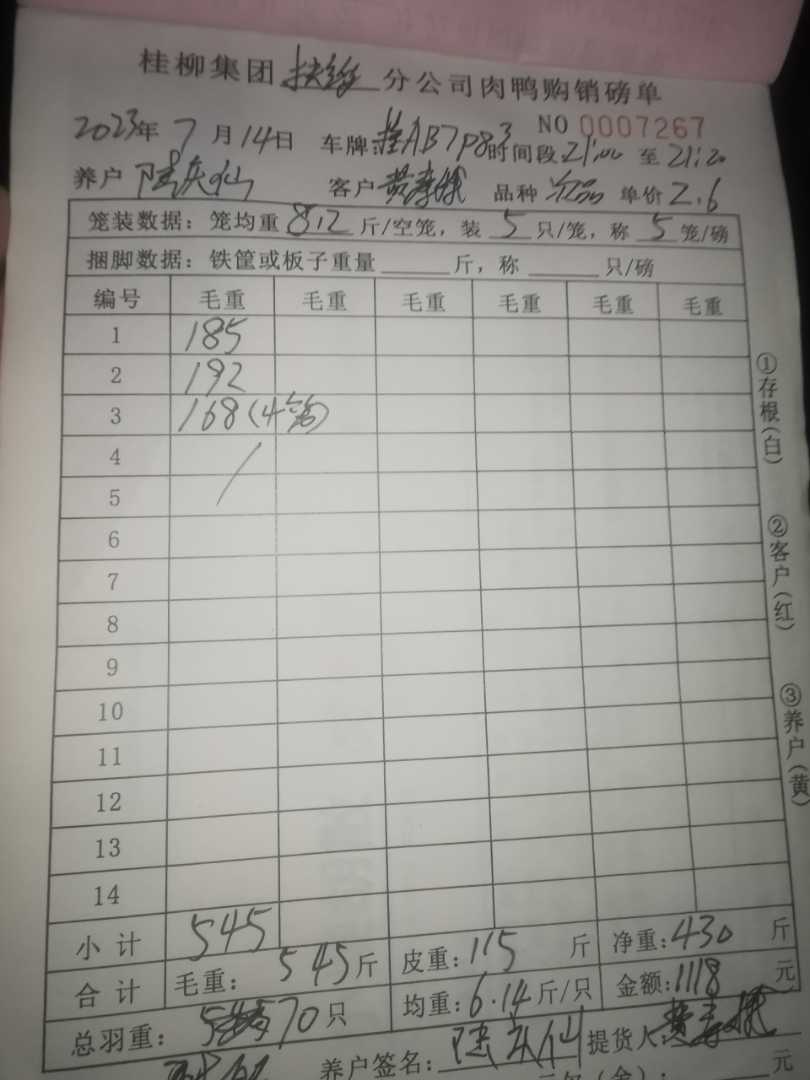 桂柳集团扶绥分公司肉鸭购销磅单
NO 0007267
2023年7月14日 车牌:桂AB7P83 时间段21:00至21:20
养户 陆庆仙 客户 黄春娥 品种 单价2.6
笼装数据：笼均重8.2斤/空笼，装5只/笼，称5笼/磅
捆脚数据：铁筐或板子重量 斤，称 只/磅
编号 毛重 毛重 毛重 毛重 毛重 毛重
1 185
2 192
3 168(4笼)
4
5
6
7
8
9
10
11
12
13
14
小计 545
合计 毛重：545斤 皮重：115斤 净重：430斤
总羽重：70只 均重：6.14斤/只 金额：1118元
养户签名：陆庆仙 提货人:黄春娥
元
①存根(白)
②客户(红)
③养户(黄)